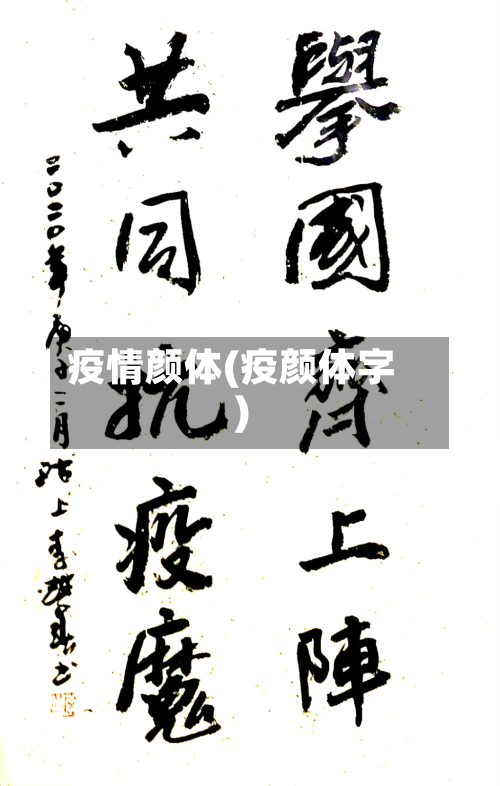 舉國齊上陣
共同抗疫魔
二〇二〇年庚子二月 上李 春书
疫情颜体(疫颜体字
)